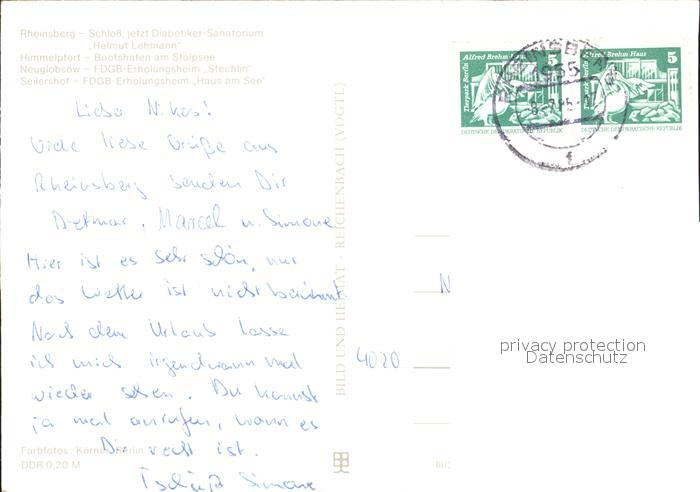 Rheinsberg – Schloß, jetzt Diabetiker-Sanatorium
„Helmut Lehmann"
Himmelpfort – Bootshafen am Stolpsee
Neuglobsow – FDGB-Erholungsheim „Stechlin"
Seilershof – FDGB-Erholungsheim „Haus am See"
Lieber Nikos!
Viele liebe Grüße aus
Rheinsberg senden Dir
Detmar, Marcel u. Simone
Hier ist es sehr schön, nur
das Wetter ist nicht berühmt.
Nach dem Urlaub lasse
ich mich irgendwann mal
wieder sehen. Du kannst
ja mal anrufen, wann es
Dir recht ist.
Tschüß Simone
Farbfotos: Körner, Berlin
DDR 0,20 M
BILD UND HEIMAT · REICHENBACH (VOGTL)
Alfred Brehm Haus 5
Tierpark Berlin
DEUTSCHE DEMOKRATISCHE REPUBLIK
Alfred Brehm Haus 5
Tierpark Berlin
DEUTSCHE DEMOKRATISCHE REPUBLIK
1955
f
N
4020
privacy protection
Datenschutz